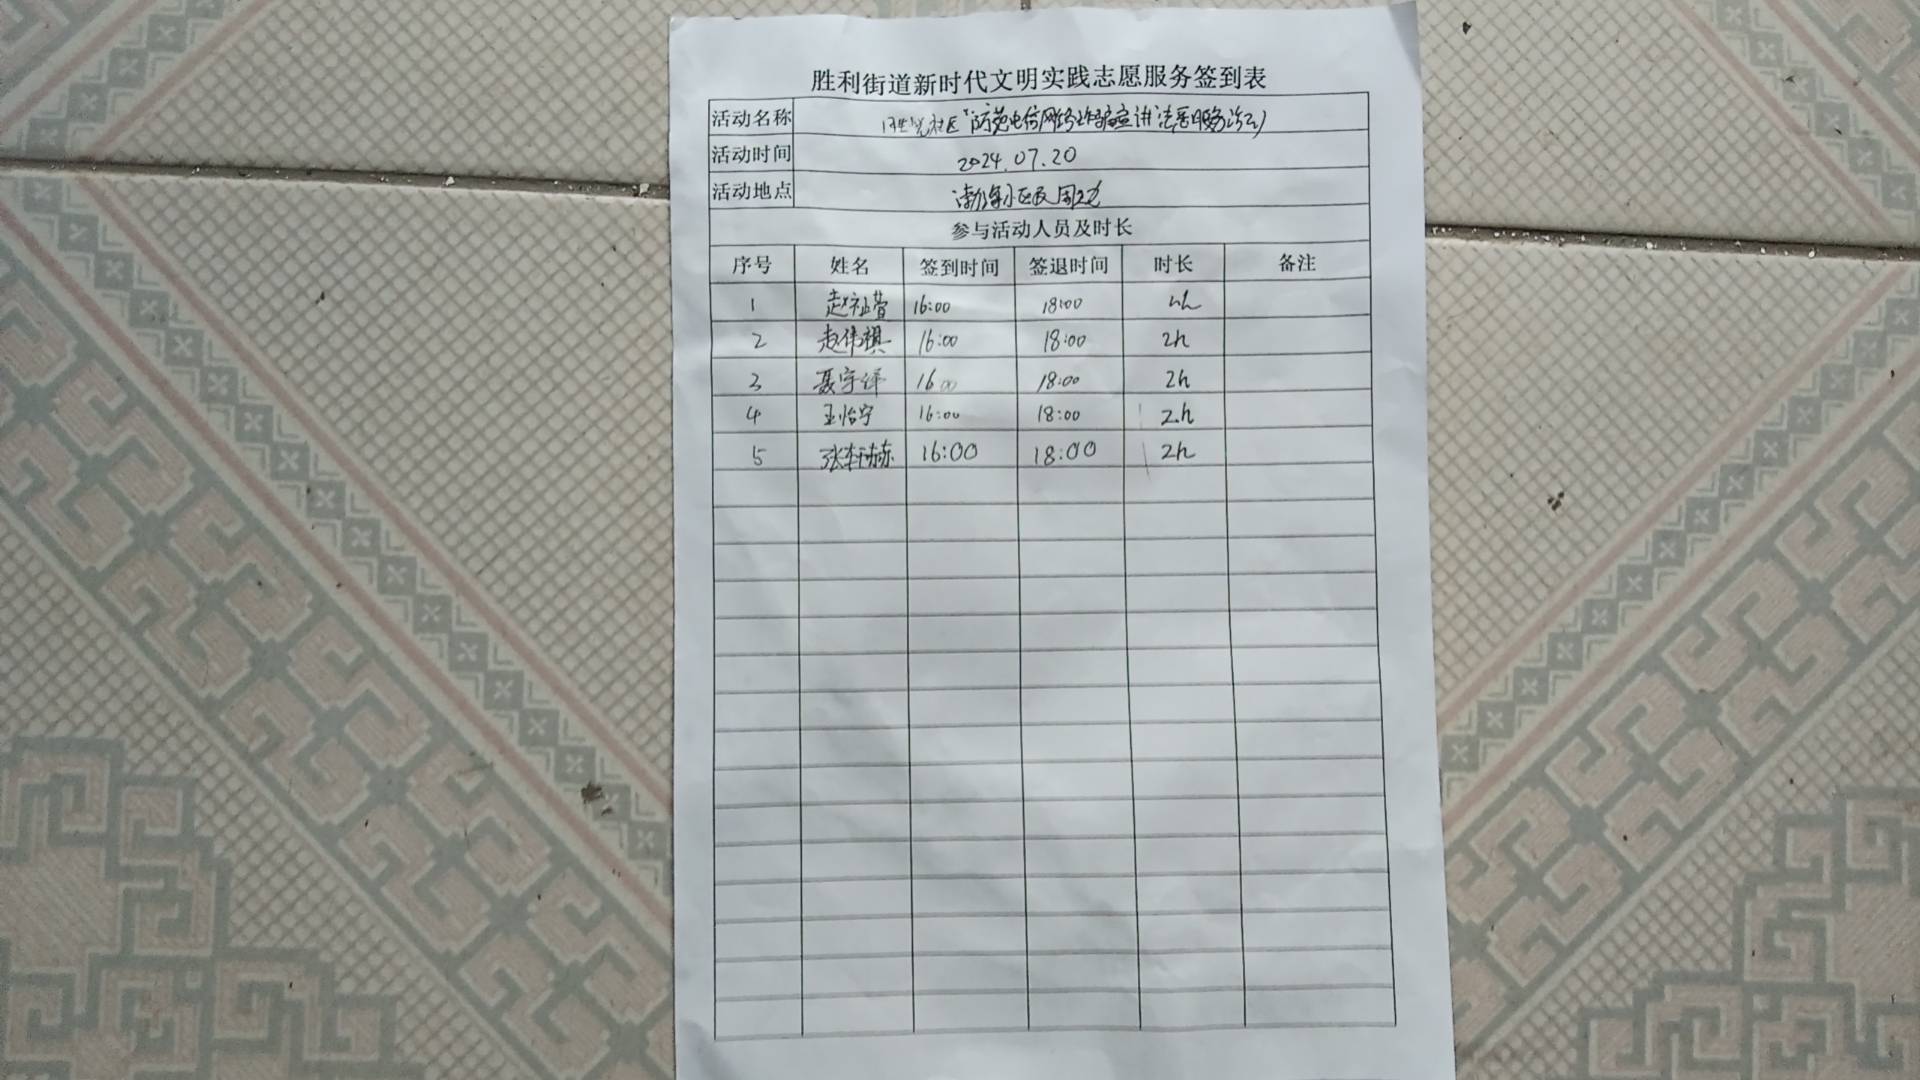 胜利街道新时代文明实践志愿服务签到表
活动名称 社区"防范电信网络诈骗宣讲志愿服务活动
活动时间 2024.07.20
活动地点 渤海小区及周边
参与活动人员及时长
序号 姓名 签到时间 签退时间 时长 备注
1 赵 16:00 18:00 2h
2 赵伟祺 16:00 18:00 2h
3 聂宇泽 16:00 18:00 2h
4 王怡宁 16:00 18:00 2h
5 张轩赫 16:00 18:00 2h